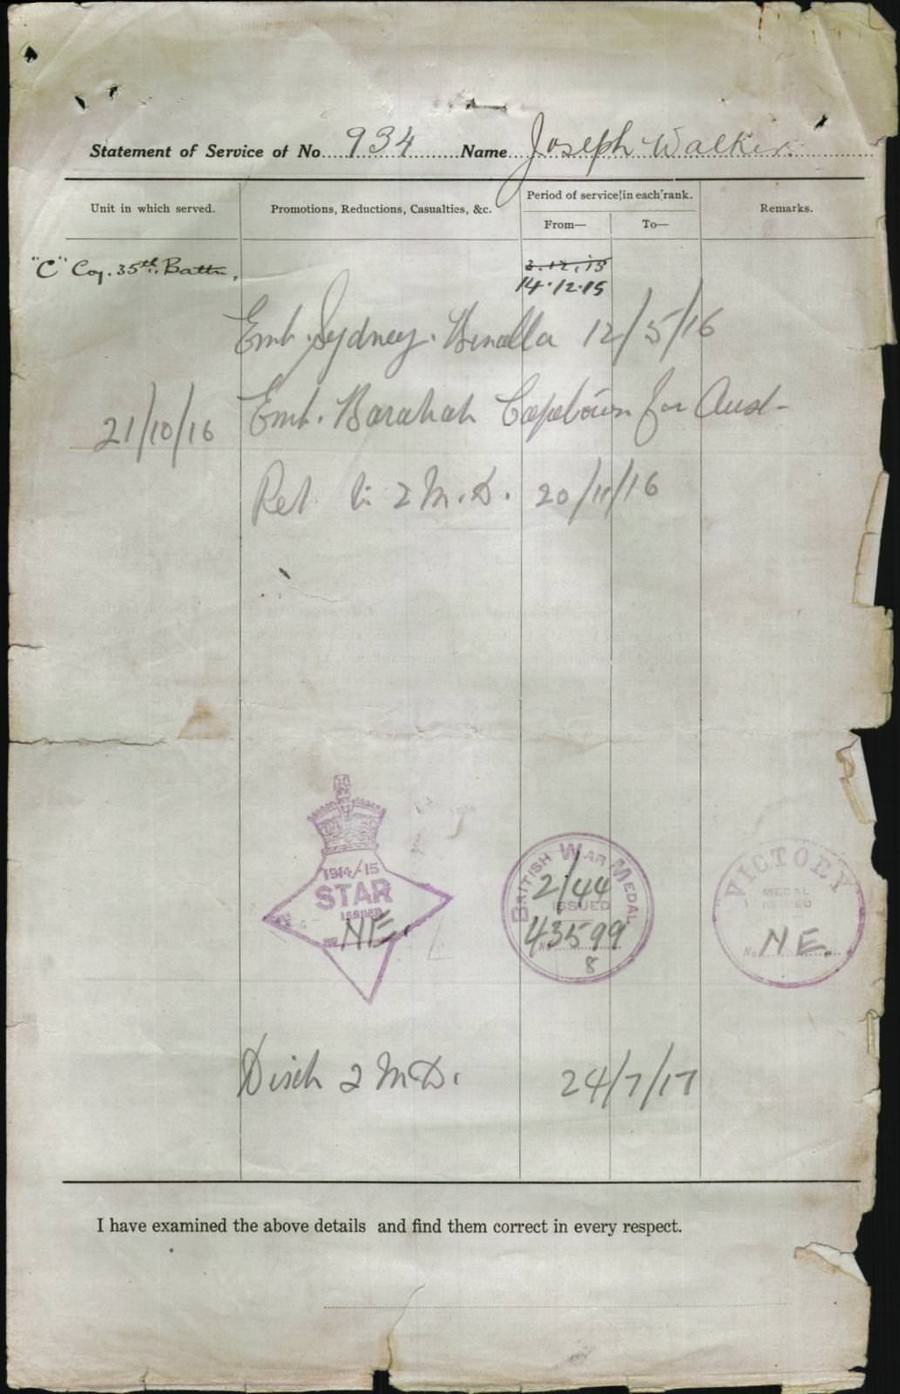 Statement of Service of No. 934 Name Joseph Walker.
Unit in which served. Promotions, Reductions, Casualties, &c. Period of service in each rank. Remarks.
From— To—
"C" Coy. 35th Battn. 3.12.15
14.12.15
Emb. Sydney. Benalla 12/5/16
21/10/16 Emb. Barahah Capetown for Aust-
Ret to 2 M.D. 20/11/16
1914/15
STAR
ISSUED
NE.
BRITISH WAR MEDAL
2/44
ISSUED
No. 43599
8
VICTORY
MEDAL
ISSUED
No. NE.
Disch 2 M.D. 24/7/17
I have examined the above details and find them correct in every respect.